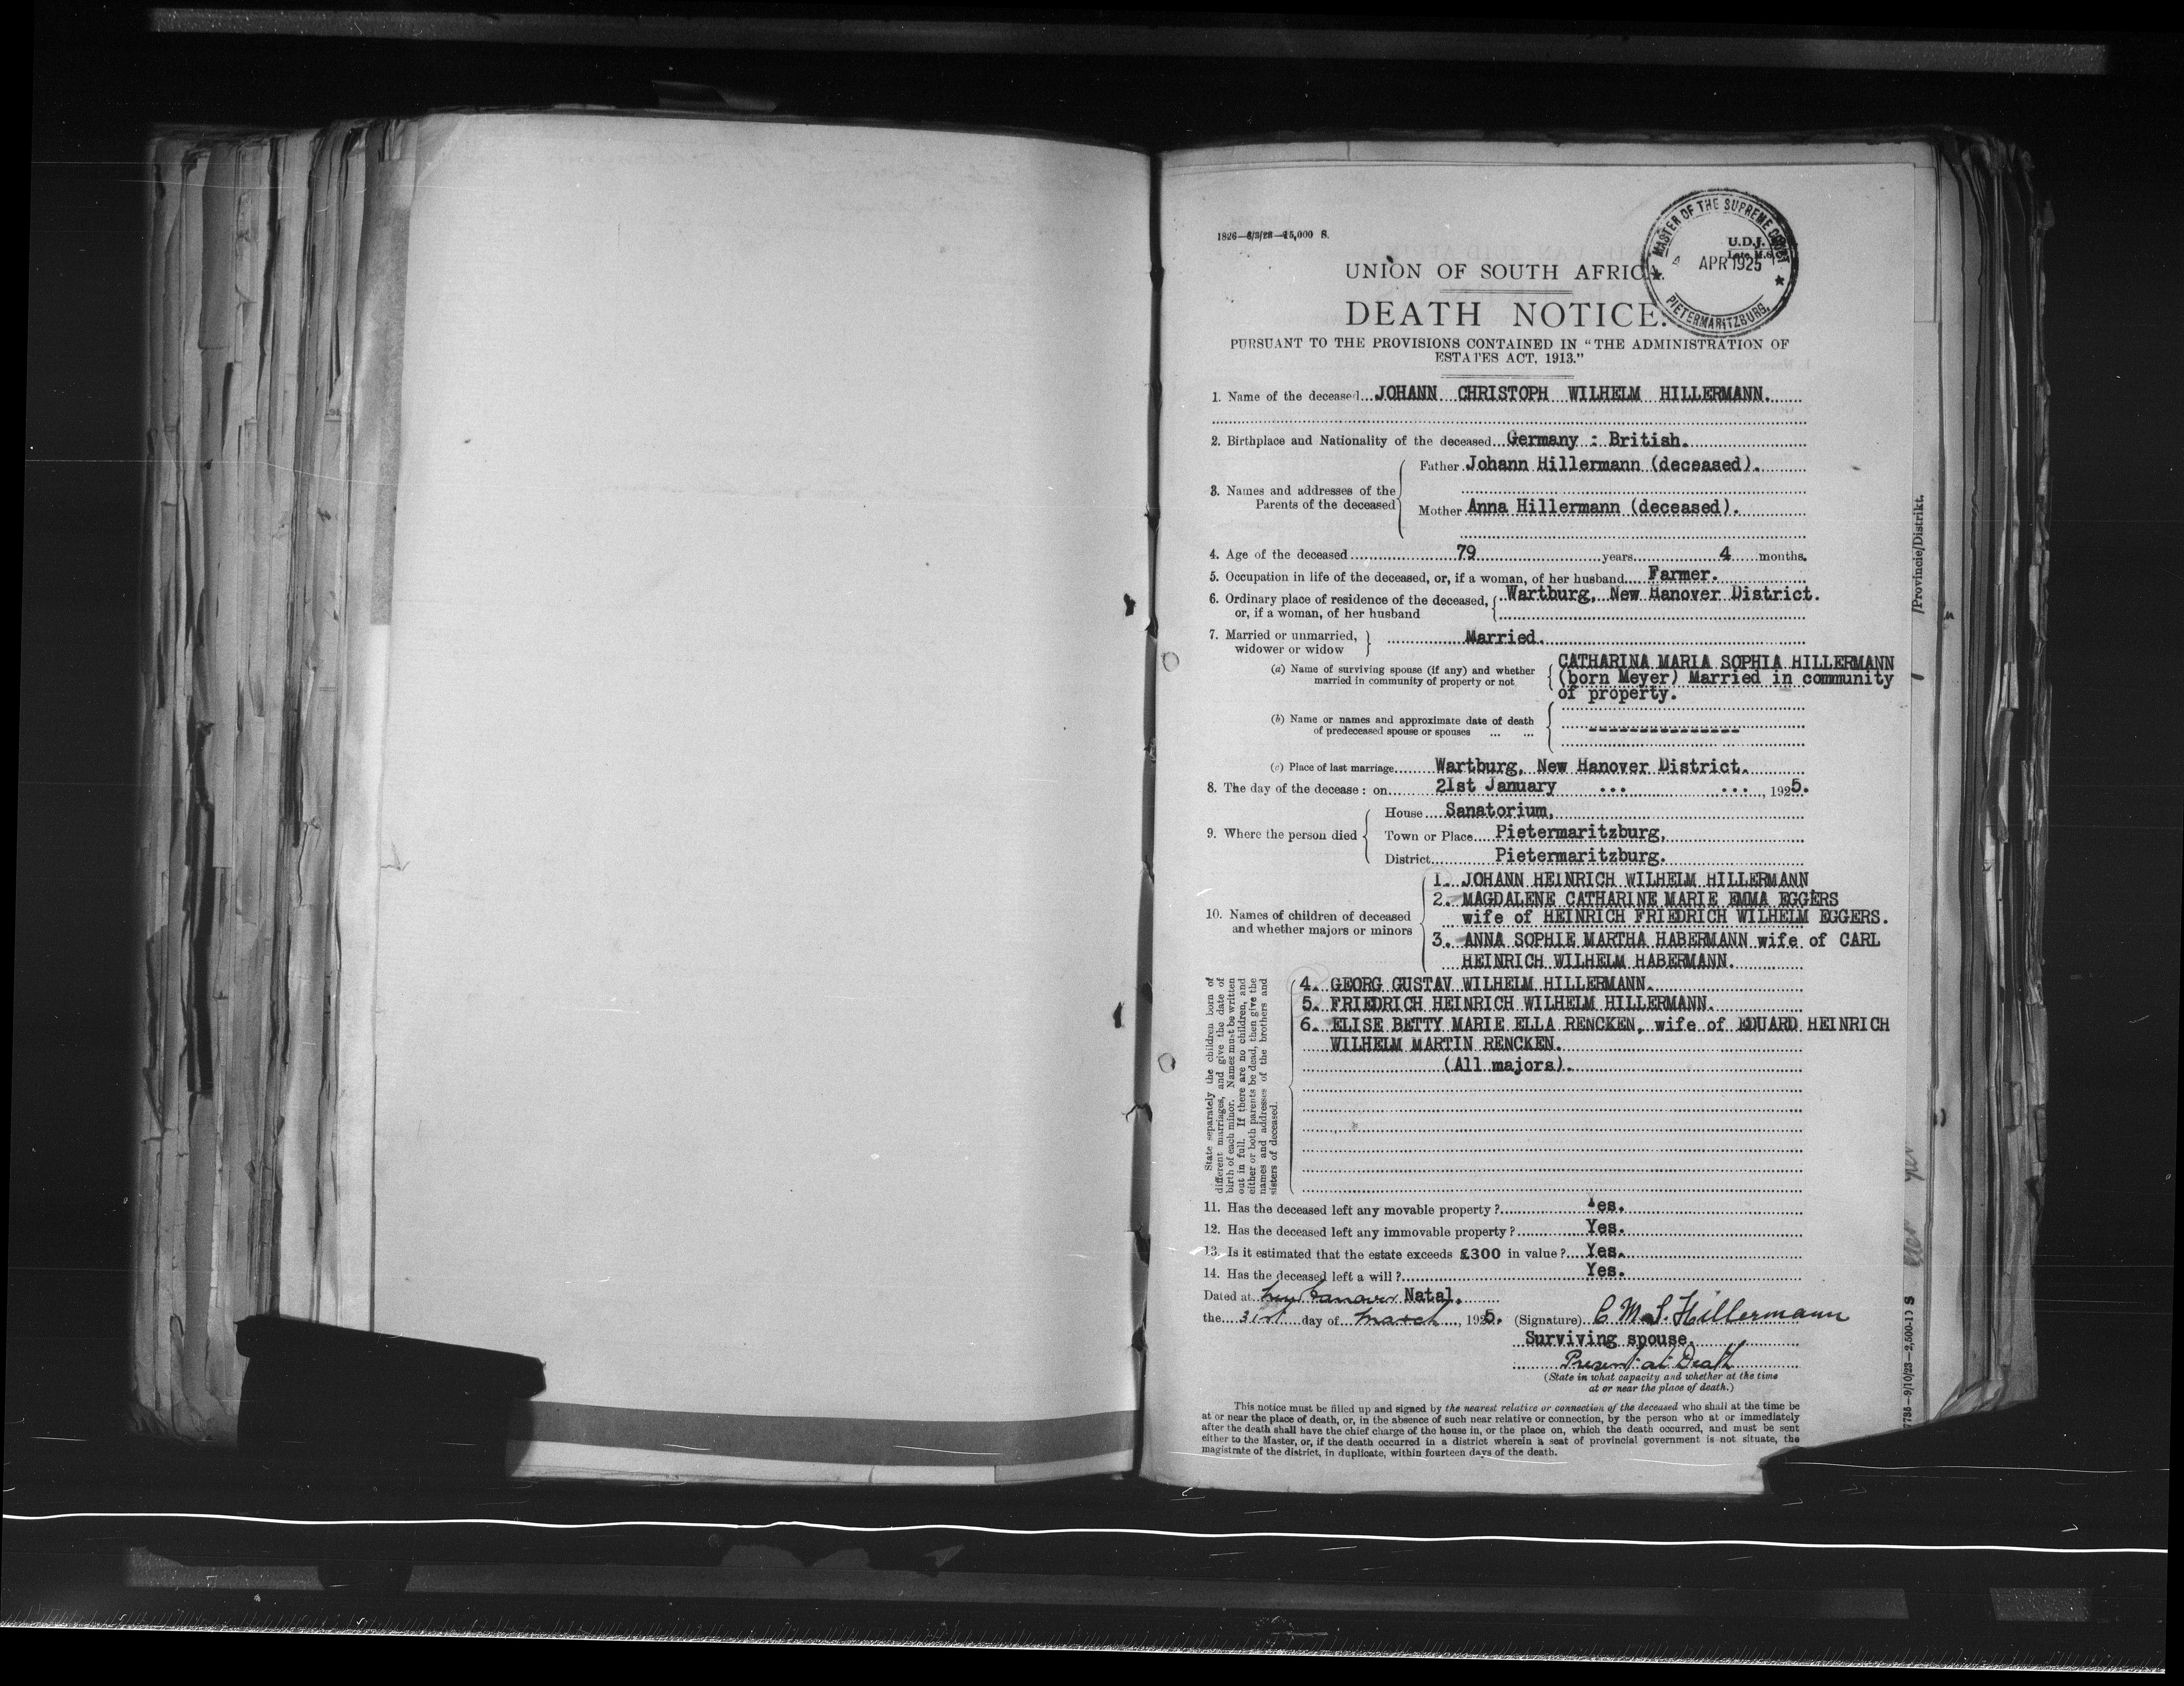 1826—8/3/22—15,000 S.
MASTER OF THE SUPREME COURT
U.D.J.
4 APR 1925
PIETERMARITZBURG.
UNION OF SOUTH AFRICA.
DEATH NOTICE.
PURSUANT TO THE PROVISIONS CONTAINED IN "THE ADMINISTRATION OF
ESTATES ACT, 1913."
1. Name of the deceased JOHANN CHRISTOPH WILHELM HILLERMANN.
2. Birthplace and Nationality of the deceased Germany : British.
3. Names and addresses of the Parents of the deceased
Father Johann Hillermann (deceased).
Mother Anna Hillermann (deceased).
4. Age of the deceased 79 years 4 months.
5. Occupation in life of the deceased, or, if a woman, of her husband Farmer.
6. Ordinary place of residence of the deceased, Wartburg, New Hanover District.
or, if a woman, of her husband
7. Married or unmarried, Married.
widower or widow
(a) Name of surviving spouse (if any) and whether
married in community of property or not
CATHARINA MARIA SOPHIA HILLERMANN
(born Meyer) Married in community
of property.
(b) Name or names and approximate date of death
of predeceased spouse or spouses ... ... ---------------
(c) Place of last marriage Wartburg, New Hanover District.
8. The day of the decease : on 21st January ... ... , 1925.
9. Where the person died
House Sanatorium,
Town or Place Pietermaritzburg,
District Pietermaritzburg.
10. Names of children of deceased
and whether majors or minors
1. JOHANN HEINRICH WILHELM HILLERMANN
2. MAGDALENE CATHARINE MARIE EMMA EGGERS
wife of HEINRICH FRIEDRICH WILHELM EGGERS.
3. ANNA SOPHIE MARTHA HABERMANN wife of CARL
HEINRICH WILHELM HABERMANN.
4. GEORG GUSTAV WILHELM HILLERMANN.
5. FRIEDRICH HEINRICH WILHELM HILLERMANN.
6. ELISE BETTY MARIE ELLA RENCKEN, wife of EDUARD HEINRICH
WILHELM MARTIN RENCKEN.
(All majors).
State separately the children born of
different marriages, and give the date of
birth of each minor. Names must be written
out in full. If there are no children, and
either or both parents be dead, then give the
names and addresses of the brothers and
sisters of deceased.
11. Has the deceased left any movable property ? Yes.
12. Has the deceased left any immovable property ? Yes.
13. Is it estimated that the estate exceeds £300 in value ? Yes.
14. Has the deceased left a will ? Yes.
Dated at New Hanover Natal.
the 31st day of March, 1925. (Signature) C. M. S. Hillermann
Surviving spouse.
Present at Death
(State in what capacity and whether at the time
at or near the place of death.)
This notice must be filled up and signed by the nearest relative or connection of the deceased who shall at the time be
at or near the place of death, or, in the absence of such near relative or connection, by the person who at or immediately
after the death shall have the chief charge of the house in, or the place on, which the death occurred, and must be sent
either to the Master, or, if the death occurred in a district wherein a seat of provincial government is not situate, the
magistrate of the district, in duplicate, within fourteen days of the death.
/Provincie/Distrikt.
7735—9/10/23—2,500-1) S